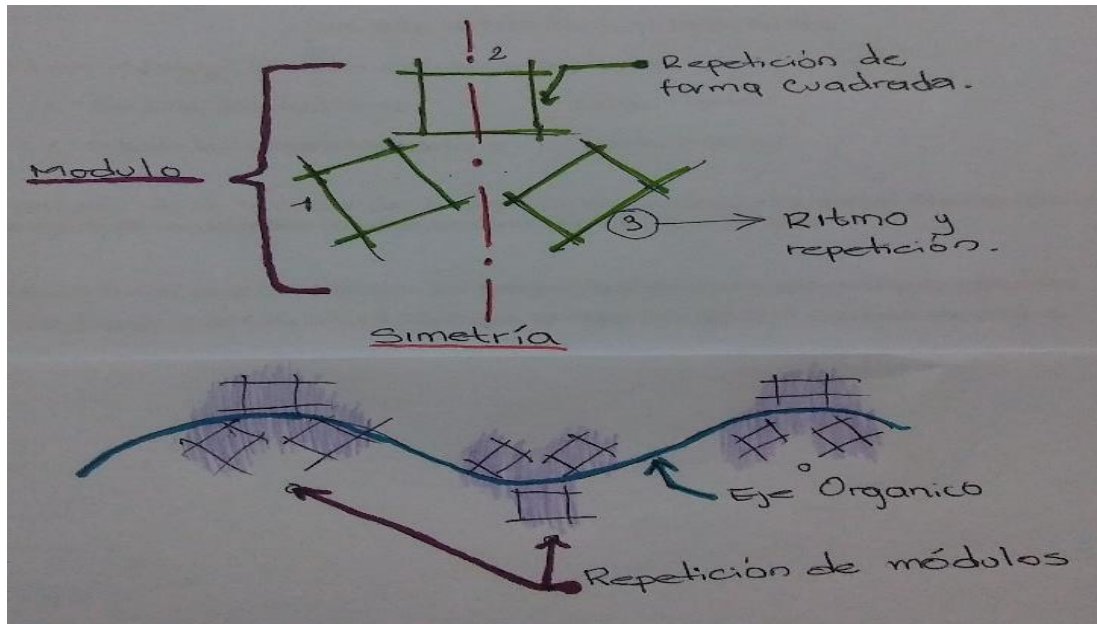 2
Repetición de
forma cuadrada.
Modulo
1
3
Ritmo y
repetición.
Simetría
Eje Organico
Repetición de módulos